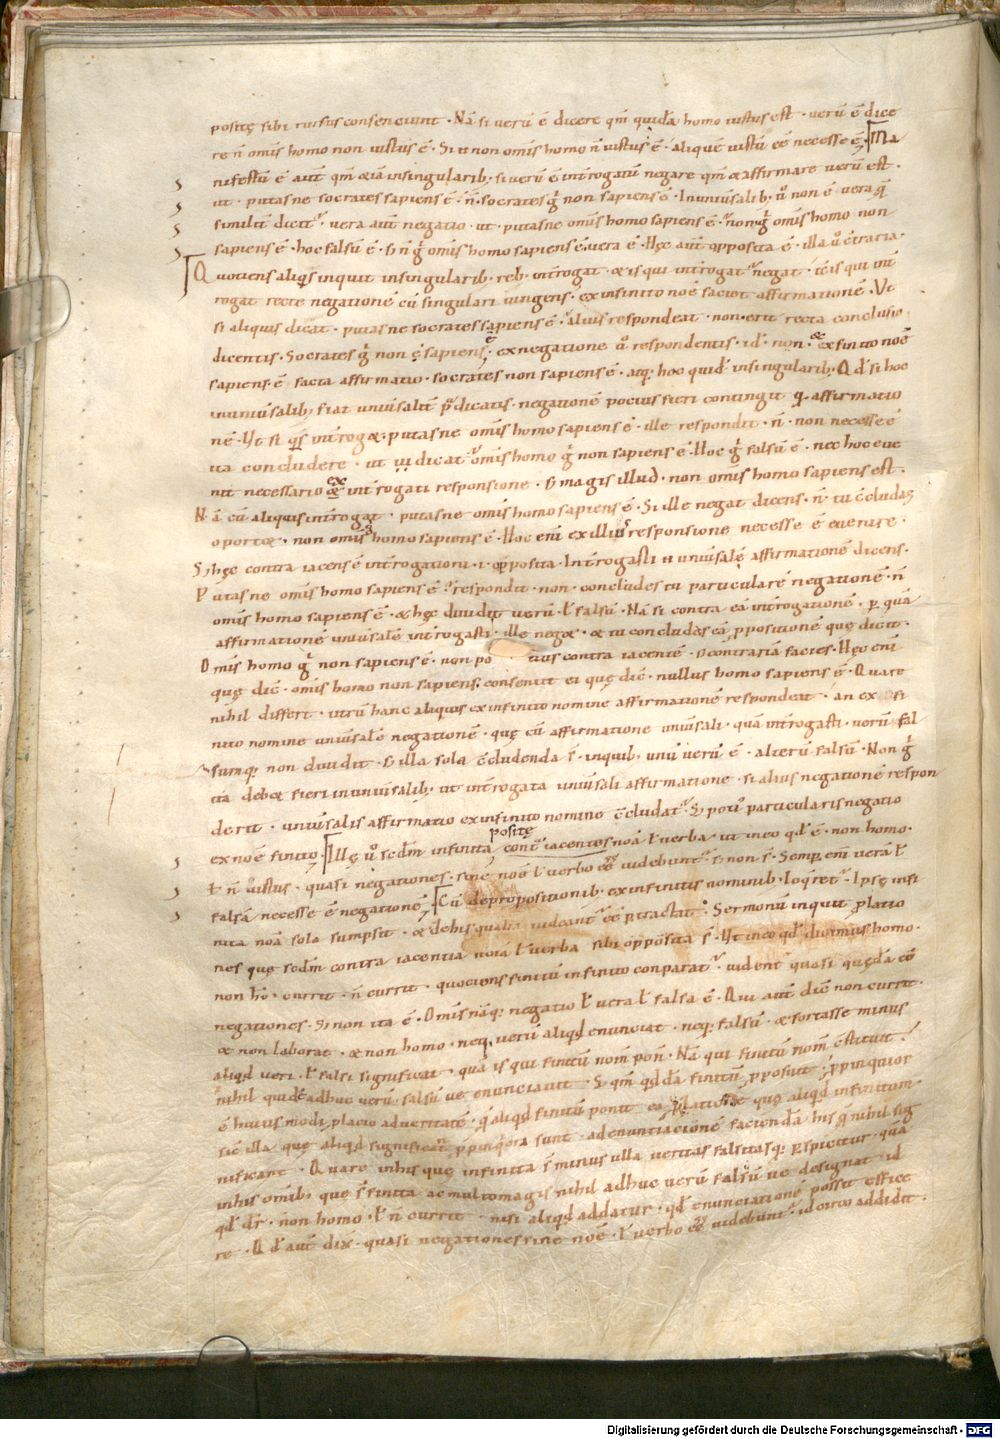 positę sibi rursus consenciunt · Nā si uerū ē dicere qm̄ quidā homo iustus est · uerū ē dice
re n̄ omīs homo non iustus ē · Si non omīs homo n̄ iustus ē · aliquē iustū eē necesse ē · Ma
nifestū ē aut̄ qm̄ &iā in singularib; si uerū ē introgatū negare qm̄ & affirmare uerū est ·
ut · putasne socrates sapiens ē · n̄ · socrates g̊ non sapiens ē · In uniūsalib; ů non ē uera q̄
similit̄ dicit᷑ · uera aut̄ negatio · ut · putasne omīs homo sapiens ē · non · g̊ omīs homo non
sapiens ē · hoc falsū ē · S; n̄ g̊ omīs homo sapiens ē uera ē · Hęc aut̄ opposita ē · illa ů c̄traria ·
Quotiens aliq̄s inquit in singularib; reb; introgat · & is qui introgat᷑ negat · is qui int̄
rogat recte negationē cū singulari iungens · ex infinito noē faciet affirmationē · Vt
si aliquis dicat · putasne socrates sapiens ē · alius respondeat · non · erit recta conclusio
dicentis · Socrates g̊ non ē sapiens · ex negatione ů respondentis · id · non · & ex finito noē
sapiens · ē facta affirmatio · socrates non sapiens ē · atq; hoc quid in singularib; Qd si hoc
in uniūsalib; fiat uniūsalit̄ p̄dicatis · negationē pocius fieri contingit q̄ affirmatio
nē · Vt si q̄s introg& · putasne omīs homo sapiens ē · ille respondit · n̄ · non necesse ē
ita concludere · ut dicat᷑ omīs homo g̊ non sapiens ē · Hoc g̊ falsū ē · nec hoc eue
nit necessario ex introgati responsione · S; magis illud · non omīs homo sapiens est ·
Nā cū aliquis introgat · putasne omīs homo sapiens ē · Si ille negat dicens · n̄ · tu c̄cludas
oport& · non omīs homo sapiens ē · Hoc enī ex illius responsione necesse ē euenire ·
S; hęc contra iacens ē introgationi · i · opposita · Introgasti uniūsalē affirmationē dicens ·
Putasne omīs homo sapiens ē · respondit · non · concludes tu particularē negationē · n̄
omīs homo sapiens ē · & hęc diuidit uerū ł falsū · Nā si contra eā introgationē · p quā
affirmationē uniūsalē introgasti · ille neg& · & tu concludas eā ppositionē quę dicit ·
Omīs homo g̊ non sapiens ē · non po tius contra iacentē · s; contrariā facies · Hęc enī
quę dic̄ · omīs homo non sapiens · consentit ei quę dic̄ · nullus homo sapiens ē · Quare
nihil differt · utrū hanc aliquis ex infinito nomine affirmationē respondeat · an ex fi
nito nomine uniūsalē negationē · quę cū affirmatione uniūsali · quā introgasti · uerū fal
sumq; non diuidit · S; illa sola c̄cludenda ē · inquib; unū uerū ē · alterū falsū · Non g̊
ita deb& fieri in uniūsalib; ut introgata uniūsali affirmatione · si alius negationē respon
derit · uniūsalis affirmatio ex infinito nomine c̄cludat᷑ · S; potiꝰ particularis negatio
ex noē finito · Illę ů scdm̄ infinita positę cont᷑ iacentes noā ł uerba ut in eo qd ē · non homo ·
ł n̄ iustus · quasi negationes · sine noē ł uerbo eē uidebunt᷑ · s; non s̄ · Semp enī uerā ł
falsā necesse ē negationē · Cū de propositionib; ex infinitis nominib; loq̄ret᷑ · Ipsę infi
nita noā sola sumpsit · & de his qualia uideant᷑ eē ptractat · Sermonū inquit platio
nes quę scdm̄ contra iacentia noīa ł uerba sibi opposita s̄ · Vt in eo qd dicimus homo ·
non ho̅ · currit · n̄ currit · quociens finitū infinito comparat᷑ · uident᷑ quasi quędā eē
negationes · S; non ita ē · Omīs nāq; negatio ł uera ł falsa ē · Qui aut̄ dic̄ non currit ·
& non laborat · & non homo · neq; uerū aliqd enunciat · neq; falsū · & fortasse minus
aliqd ueri · ł falsi significat · quā is qui finitū nom̄ pon̄ · Nā qui finitū nom̄ c̄stituit
nihil quidē adhuc uerū falsū ue enunciauit · S; qm̄ qddā finitū pposuit · ppinquior
ē huius modi platio ad ueritatē · q̄ aliqd finitū ponit ea platione quę aliqd infinitum
sic illa quę aliqd significant · ppinq̄ora sunt · ad enuntiacionē faciendā his q̄ nihil sig
nificant · Quare in his quę infinita s̄ minus ulla ueritas falsitasq; pspicitur · quā
in his omib; quę s̄ finita ac multo magis nihil adhuc uerū falsū ue designat id
qd dr̄ · non homo · ł n̄ currit · nisi aliqd addatur · qd enunciationē possit effice
re · Qd aut̄ dix̄ · quasi negationes sine noē · ł uerbo eē uidebunt᷑ · idcirco addidit ·
Digitalisierung gefördert durch die Deutsche Forschungsgemeinschaft - DFG